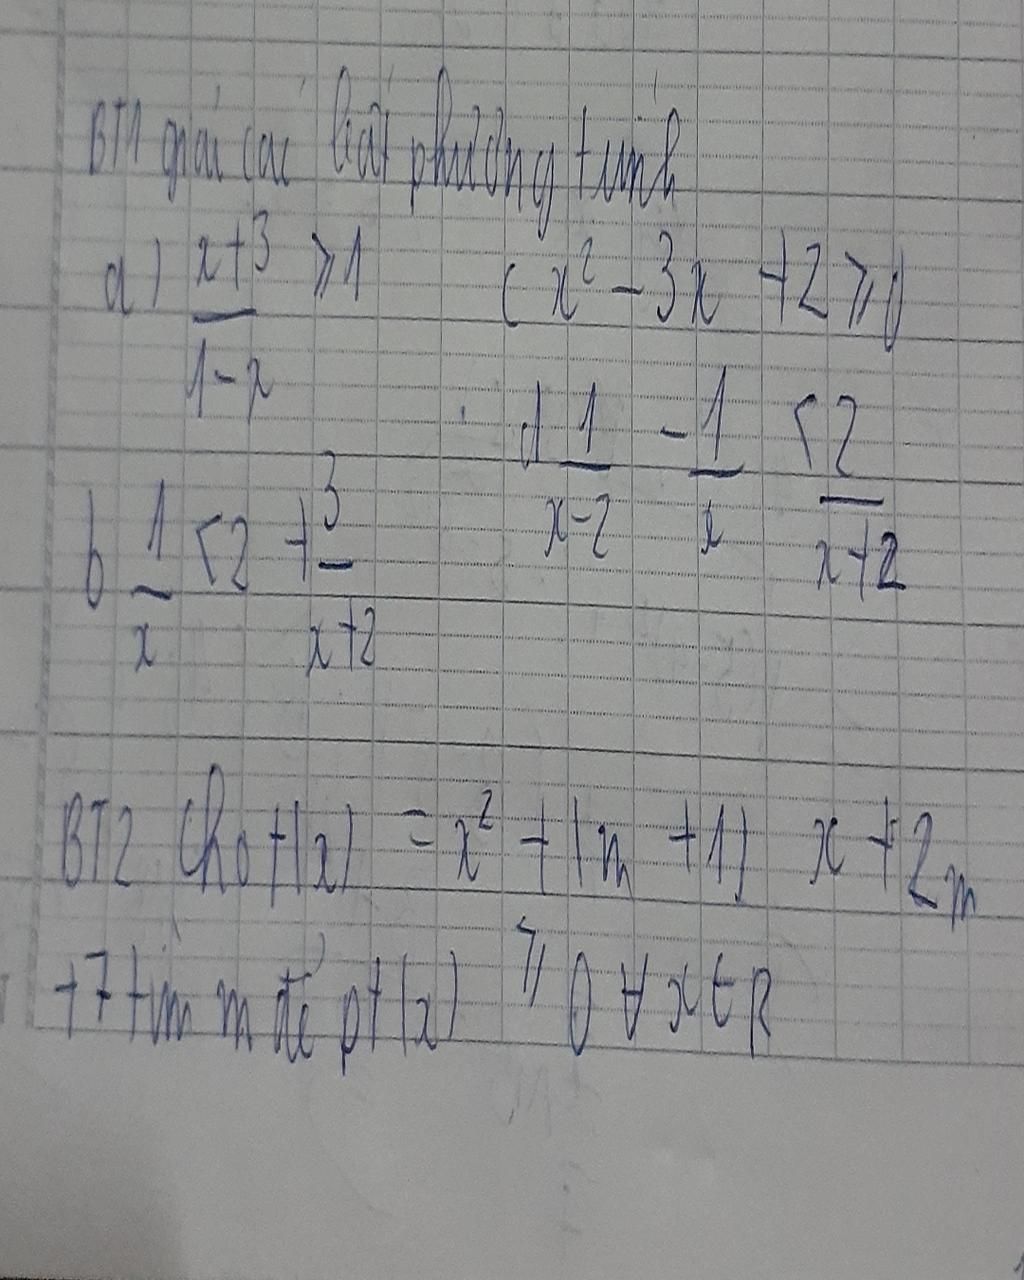 BT1 giải các bất phương trình
a) x+3 / 1-x ⩾ 1
c x² - 3x + 2 ⩾ 0
d 1 / x-2 - 1 / x < 2 / x+2
b 1 / x < 2 + 3 / x+2
BT2 Cho f(x) = x² + (m + 1) x + 2m
+7 tìm m để pt (x) ⩾ 0 ∀ x ∈ R